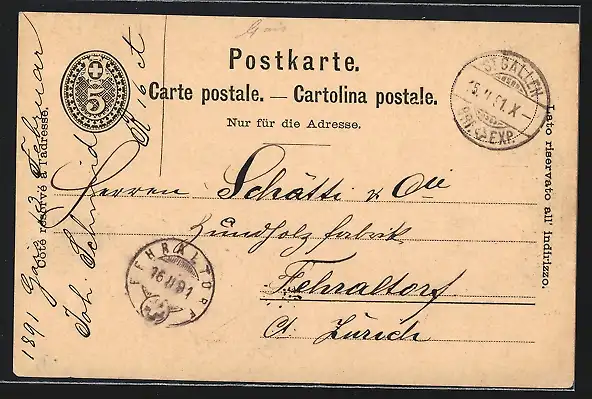 Postkarte.
Carte postale. — Cartolina postale.
Nur für die Adresse.
Côté réservé à l'adresse.
Lato riservato all' indirizzo.
5
ST. GALLEN
15.II.91.X–
BRF. EXP.
Herren Schätti & Cie
Zündholzfabrik
Fehraltorf
Ct. Zürich
FEHRALTORF
16.II.91
1891 Februar
Joh. Schmid